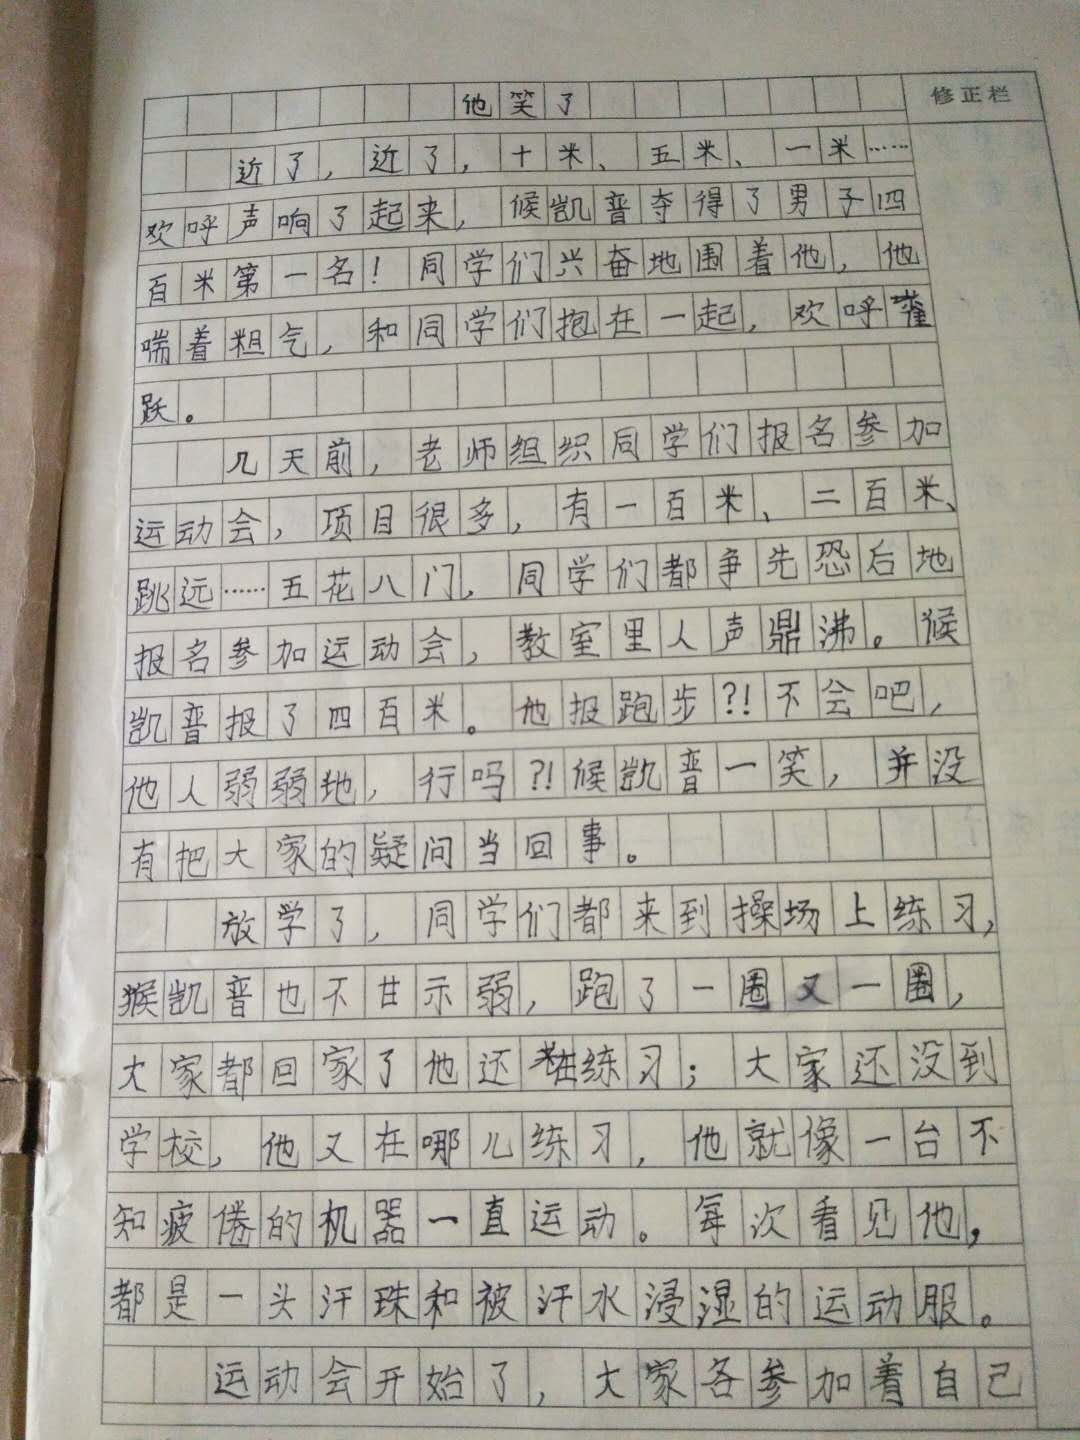 他笑了
修正栏
近了，近了，十米、五米、一米……
欢呼声响了起来，候凯普夺得了男子四
百米第一名！同学们兴奋地围着他，他
喘着粗气，和同学们抱在一起，欢呼雀
跃。
几天前，老师组织同学们报名参加
运动会，项目很多，有一百米、二百米、
跳远……五花八门，同学们都争先恐后地
报名参加运动会，教室里人声鼎沸。候
凯普报了四百米。他报跑步?!不会吧，
他人弱弱地，行吗?!候凯普一笑，并没
有把大家的疑问当回事。
放学了，同学们都来到操场上练习，
猴凯普也不甘示弱，跑了一圈又一圈，
大家都回家了他还在练习；大家还没到
学校，他又在哪儿练习，他就像一台不
知疲倦的机器一直运动。每次看见他，
都是一头汗珠和被汗水浸湿的运动服。
运动会开始了，大家各参加着自己